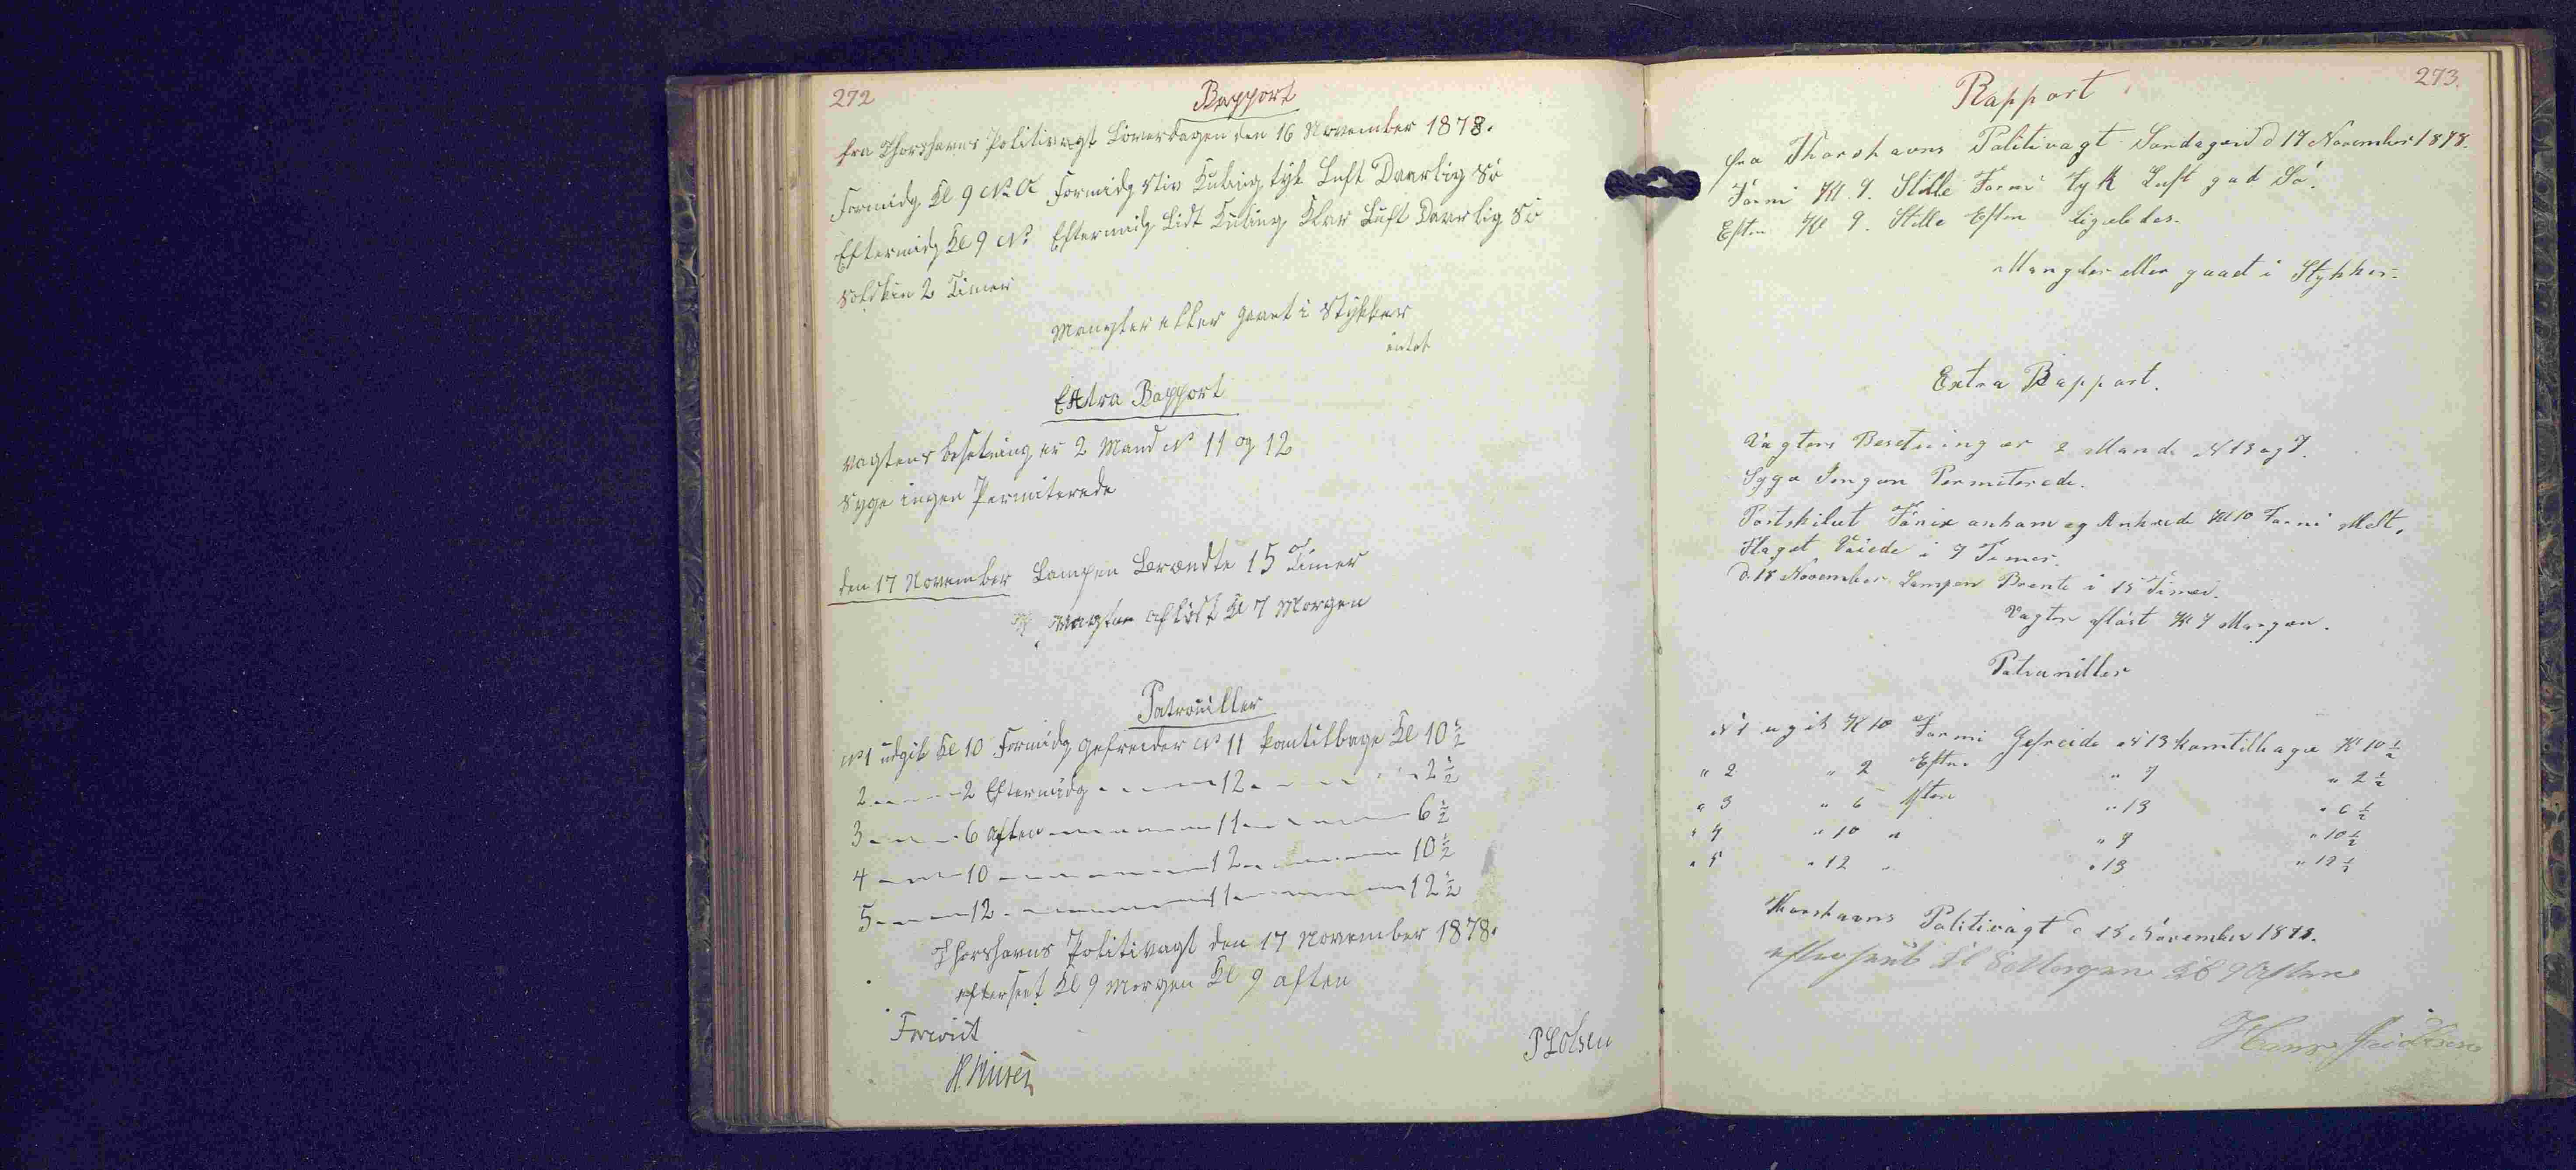 272
Rapport
fra Thorshavns Politivagt Löverdagen den 16 November 1878.
Formidg Kl 9 N.O. Formidg Stiv Kuling tyk Luft Daarlig Sö
Eftermidg Kl 9 N. Eftermidg Lidt Kuling Klar Luft Daarlig Sö
Solskin 2 Timer
Mangler eller gaaet i Stykker
intet
Extra Rapport
Vagtens besetning er 2 Mand No 11 og 12
Syge ingen Permiterede
den 17 November Lampen Brændte 15 Timer
Vagten aflöst Kl 7 Morgen
Patrouiller
No 1 udgik Kl 10 Formidg Gefreider No 11 komtilbage Kl 10 1/2
2 - - - - 2 Eftermidg - - - - - 12 - - - - - 2 1/2
3 - - - - 6 Aften - - - - - 11 - - - - - 6 1/2
4 - - - - 10 - - - - - 12 - - - - - 10 1/2
5 - - - - 12 - - - - - 11 - - - - - 12 1/2
Thorshavns Politivagt den 17 November 1878.
efterseet Kl 9 Morgen Kl 9 aften
Forevist
H. Müller
P L Olsen
273.
Rapport
fra Thorshavns Politivagt Söndagend d 17 November 1878.
Formi Kl. 9. Stille Formi tyk Luft god Sö.
Eftm Kl 9. Stille Eftm ligeledes.
Mangler eller gaaet i Stykker.
Extra Rapport.
Vagtens Besetning er 2 Mand. N 13 og 7.
Syge Ingen Permiterede.
Postskibet Fönix ankom og Ankrede Kl 10 Formi Melt.
Flaget Vaiede i 7 Timer.
D. 18 November Lampen Brente i 15 Timer.
Vagten aflöst Kl 7 Morgen.
Patrouiller
N 1 ugik Kl 10 Formi Gefreide N 13 komtilbage Kl 10 1/2
" 2 " 2 Eftm. " 7 " 2 1/2
" 3 " 6 Aften " 13 " 6 1/2
" 4 " 10 " " 7 " 10 1/2
" 5 " 12 " " 13 " 12 1/2
Thorshavns Politivagt d 18 November 1878.
efterseet Kl 8 Morgen Kl 9 Aften
Hans